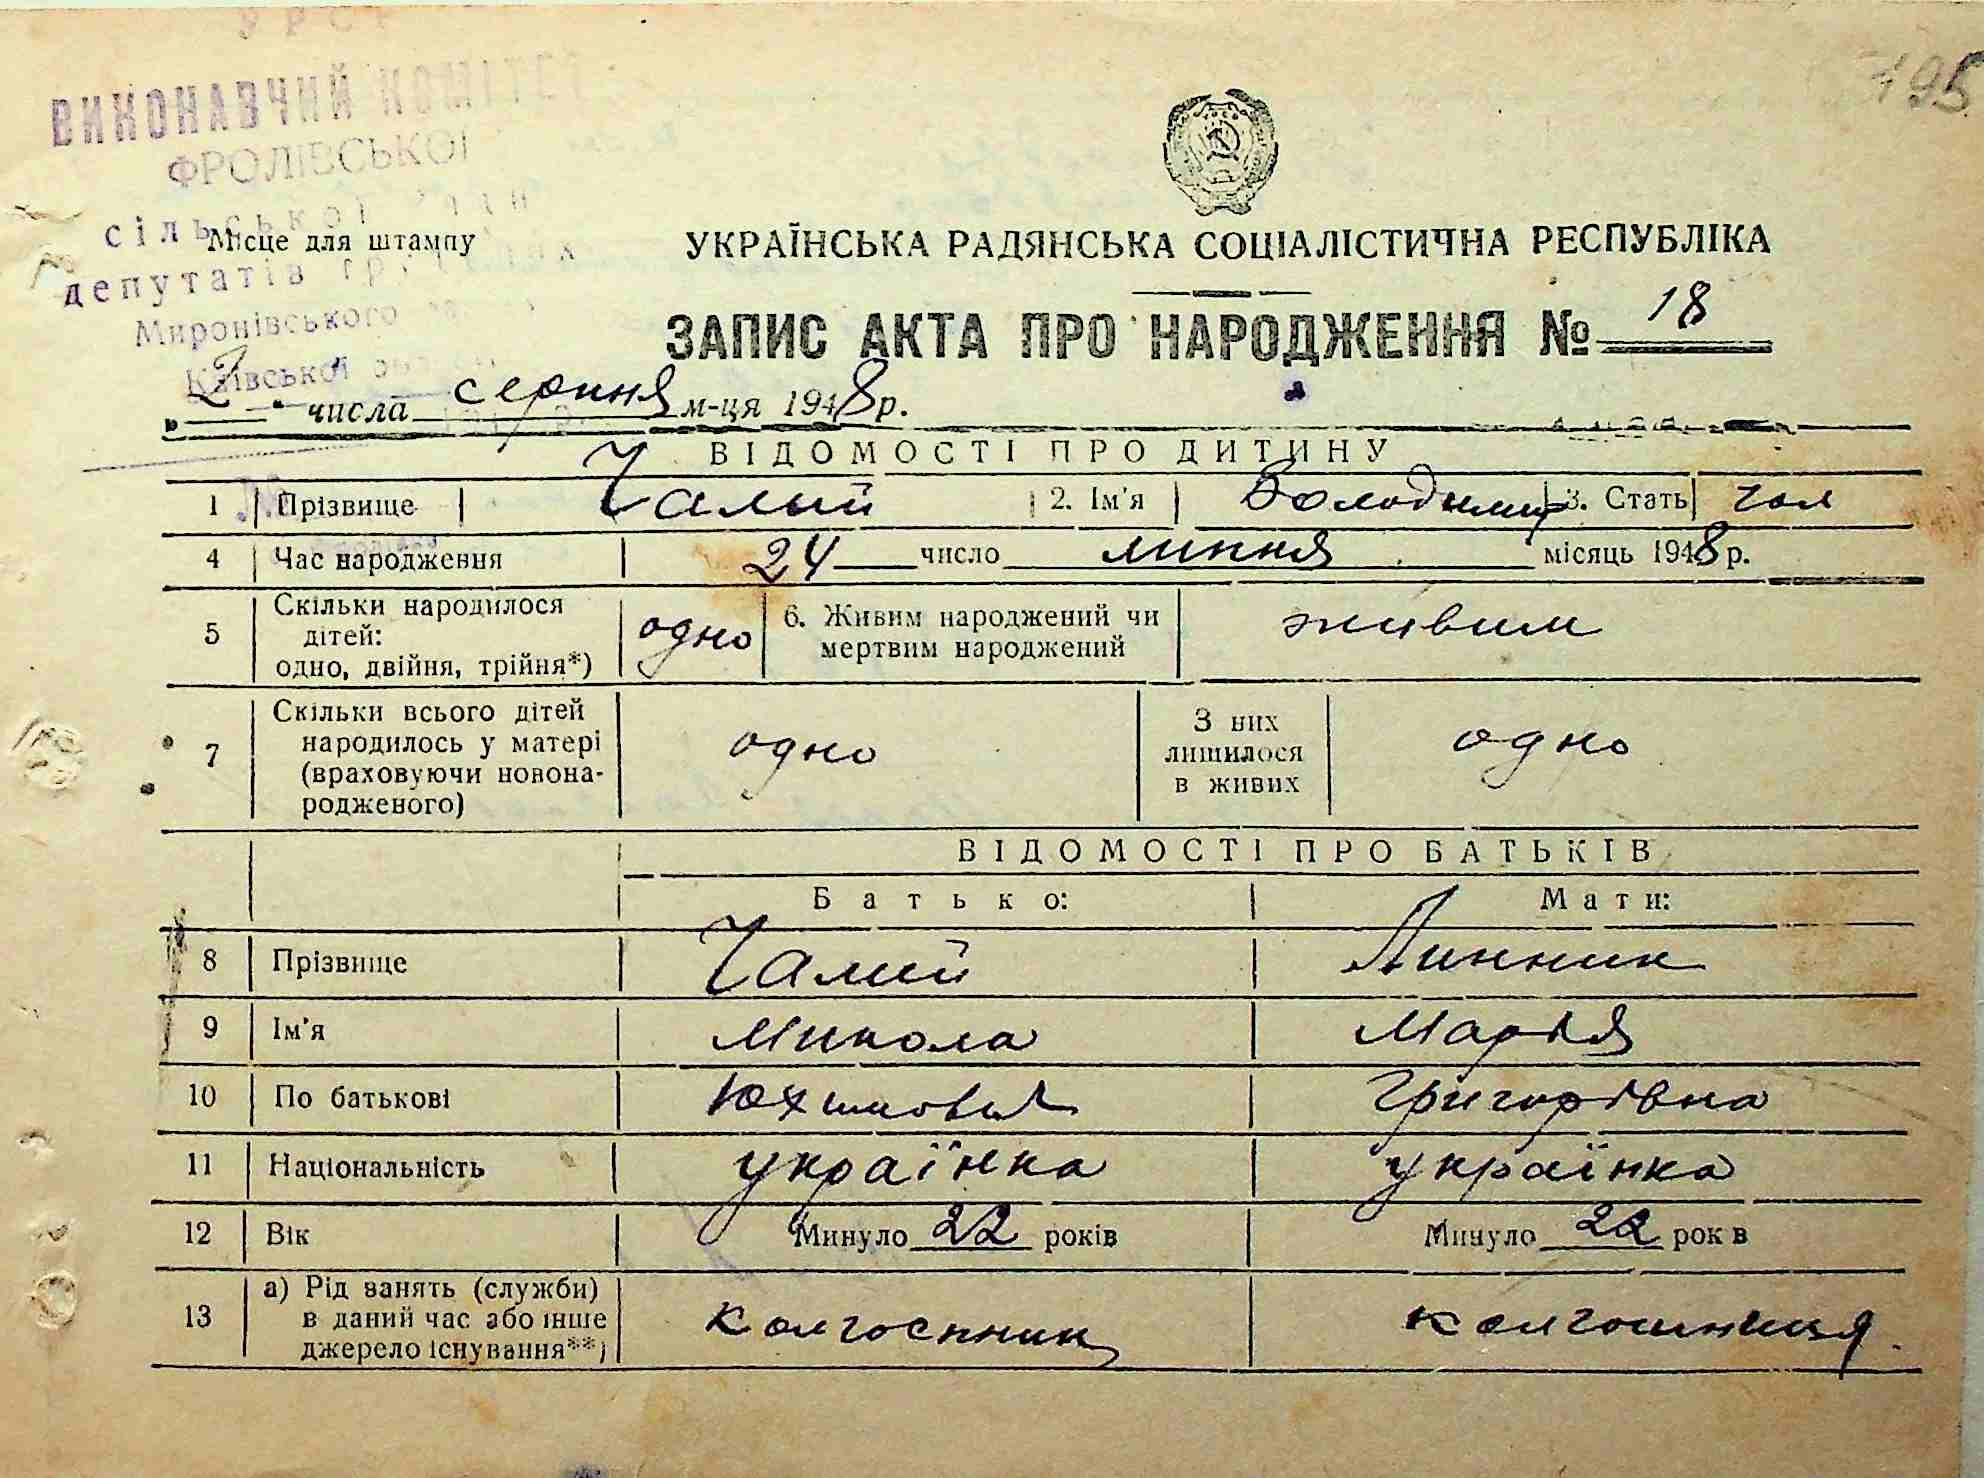 УРСР
195
ВИКОНАВЧИЙ КОМІТЕТ
ФРОЛІВСЬКОЇ
сільської Ради
депутатів трудящих
Миронівського
Київської області
Місце для штампу
УКРАЇНСЬКА РАДЯНСЬКА СОЦІАЛІСТИЧНА РЕСПУБЛІКА
ЗАПИС АКТА ПРО НАРОДЖЕННЯ № 18
„2“ числа серпня м-ця 1948 р.
ВІДОМОСТІ ПРО ДИТИНУ
1 Прізвище Чалый 2. Ім'я Володимир 3. Стать чол
4 Час народження 24 число липня місяць 1948 р.
5 Скільки народилося дітей: одно, двійня, трійня*) одно 6. Живим народжений чи мертвим народжений живим
7 Скільки всього дітей народилось у матері (враховуючи новонародженого) одно З них лишилося в живих одно
ВІДОМОСТІ ПРО БАТЬКІВ
Батько: Мати:
8 Прізвище Чалий Линник
9 Ім'я Микола Марія
10 По батькові Юхимович Григорівна
11 Національність українка українка
12 Вік Минуло 22 років Минуло 22 рок в
13 а) Рід занять (служби) в даний час або інше джерело існування**) колгоспник колгошниця